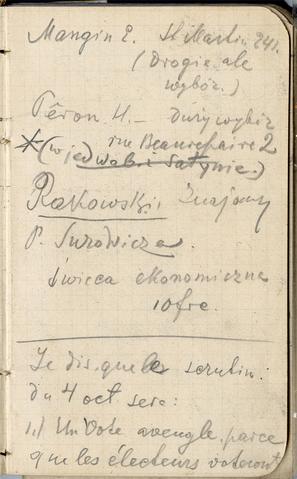 Mangin E. St Martin 241.
(Drogie ale
wybór.)
Péron H. – duży wybór
rue Beaurepaire 2
*(w jed
Rakowski. Znajomy
P. Surowicza.
świeca ekonomiczna
10 frc.
Je dis que le scrutin
du 4 oct sera:
1.) Un vote aveugle, parce
que les électeurs voteront